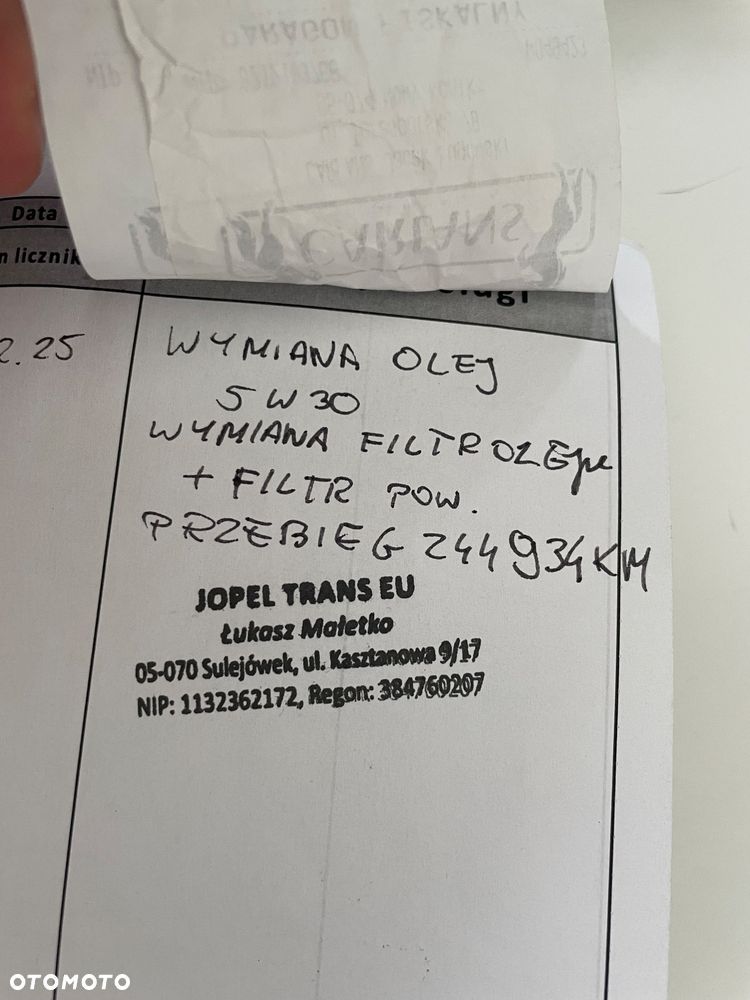 PARAGON FISKALNY
CARTRANS
Data
n licznik
2.25
WYMIANA OLEJ
5W30
WYMIANA FILTR OLEju
+ FILTR POW.
PRZEBIEG 244934KM
JOPEL TRANS EU
Łukasz Małetko
05-070 Sulejówek, ul. Kasztanowa 9/17
NIP: 1132362172, Regon: 384760207
OTOMOTO